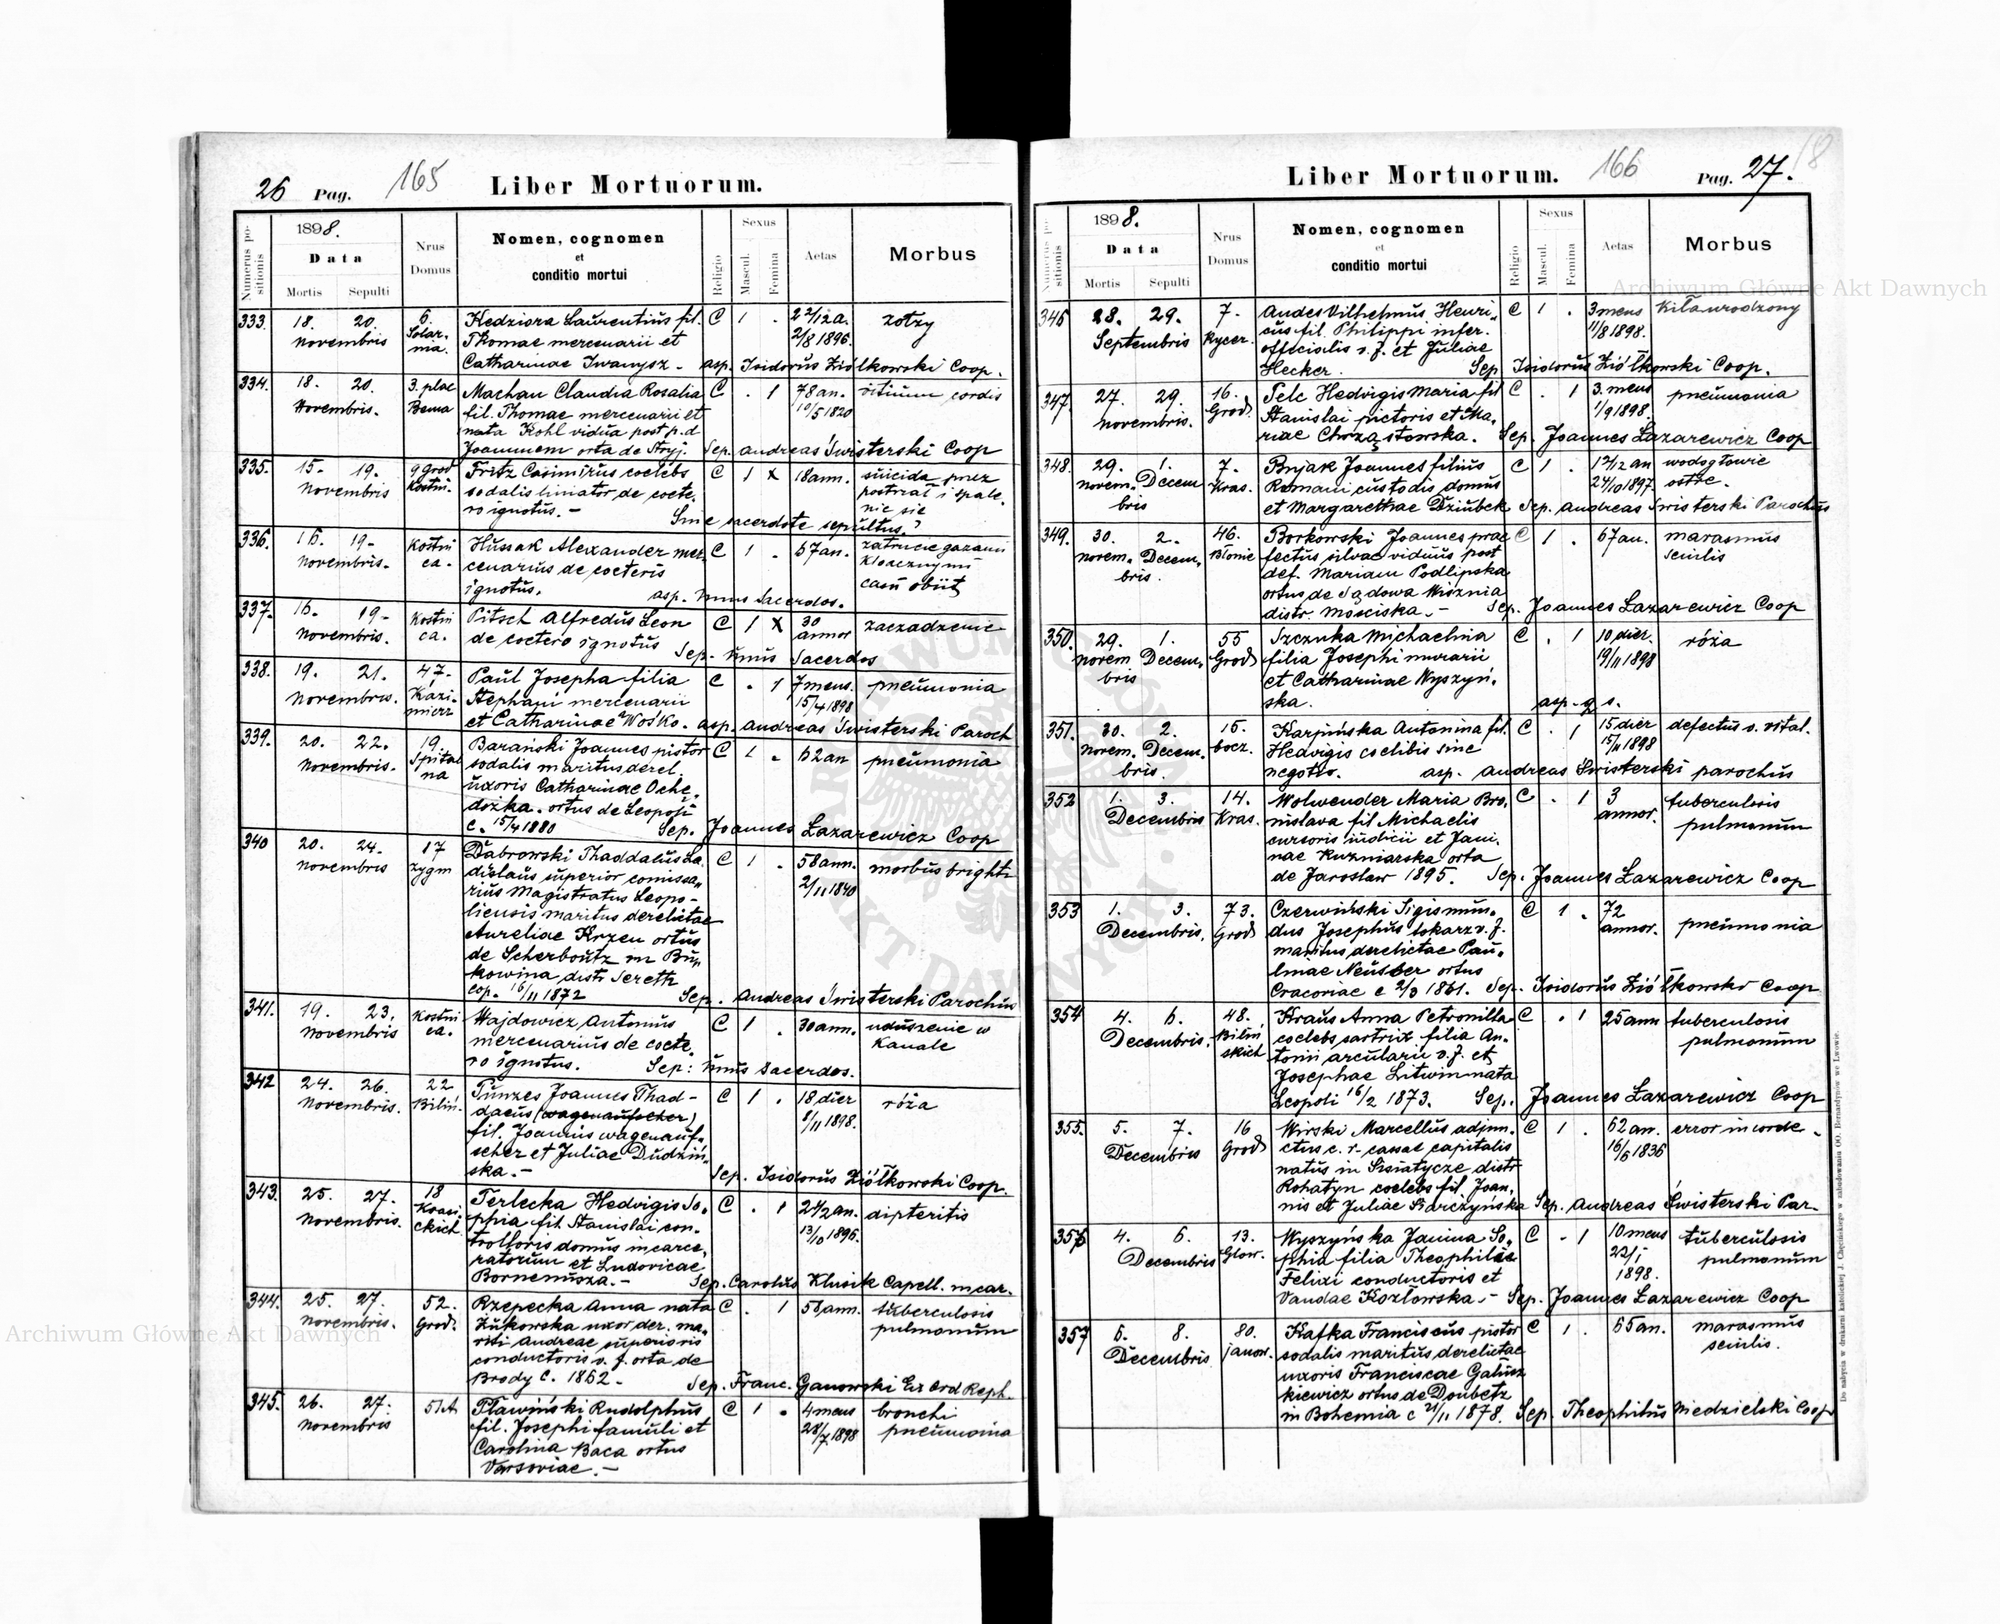 26 Pag. 165 Liber Mortuorum.
Numerus positionis
1898.
Data
Mortis Sepulti
Nrus Domus
Nomen, cognomen
et
conditio mortui
Religio
Sexus
Mascul. Femina
Aetas
Morbus
333. 18. 20. 6. Kedziora Laurentius fil. C 1 . 2 2/12 a. zołzy
Novembris Solarnia. Thomae mercenarii et 2/8 1896.
Catharinae Iwanysz - asp. Isidorus Ziółkowski Coop.
334. 18. 20. 3. plac Machan Claudia Rosalia C . 1 78 an. vitium cordis
Novembris. Bema fil. Thomae mercenarii et 10/5 1820
nata Kohl vidua post p. d
Joannem orta de Stryj. Sep. Andreas Swisterski Coop
335. 15. 19. 9 grod Fritz Casimirus coelebs C 1 x 18 ann. suicida przez
Novembris Kostni. sodalis limator de coete- postrzał i spale
ro ignotus. - nie się
Sine sacerdote sepultus.
336. 16. 19. Kostni Hussak Alexander mer C 1 . 67 an. zatrucie gazami
Novembris. ca. cenarius de coeteris kloacznymi
ignotus. asp. unus Sacerdos. casu obiit
337. 16. 19. Kostni Pitsch Alfredus Leon C 1 x 30 zaczadzenie
Novembris. ca. de coetero ignotus annor
Sep. unus Sacerdos
338. 19. 21. 47. Paul Josepha filia C . 1 7 mens. pneumonia
Novembris. Kazimierz Stephani mercenarii 15/4 1898
et Catharinae Wośko. asp. Andreas Swisterski Paroch
339. 20. 22. 19 Barański Joannes pistor C 1 . 62 an pneumonia
Novembris. Spital na sodalis maritus derel.
uxoris Catharinae Oche,
dożka. ortus de Leopoji
c. 15/4 1880 Sep. Joannes Lazarewicz Coop
340 20. 24. 17 Dabrowski Thaddäus La C 1 . 58 ann. morbus brighti
Novembris zygm dislaus superior comissa, 2/11 1840
rius Magistratus Leopo-
liensis maritus derelictae
Aureliae Krzen ortus
de Scherboutz in Bu,
kowina distr Sereth
cop. 16/11 1872 Sep. Andreas Swisterski Parochus
341. 19. 23. Kostni Wajdowicz Antonius C 1 . 30 ann. uduszenie w
Novembris ca. mercenarius de coete, kanale
ro ignotus. Sep: unus Sacerdos.
342 24. 26. 22 Punzes Joannes Thad- C 1 . 18 dier róża
Novembris. Biliń. daeus (wagenaufscher) 8/11 1898.
fil. Joannis wagenauf,
scher et Juliae Dudziń,
ska. - Sep. Isidorus Ziółkowski Coop.
343. 25. 27. 18 Terlecka Hedvigis So, C . 1 2 4/2 an. dipteritis
Novembris. Krasi. ckich phia fil. Stanislai con, 13/10 1896.
trolloris domus incarce,
ratorum et Ludovicae
Bornemisza. - Sep. Carolus Klusik Capell. incar.
344. 25. 27. 52. Rzepecka Anna nata C . 1 58 ann. tuberculosis
Novembris. Grod. Żukowska uxor der. ma, pulmonum
riti Andreae superioris
conductoris v. f. orta de
Brody c. 1862 - Sep. Franc. Ganowski Ex Ord Reph.
345. 26. 27. 51A Pławiński Rudolphus C 1 . 4 mens bronchi
Novembris fil. Josephi famuli et 28/7 1898 pneumonia
Carolina Baca ortus
Varsoviae. -
Liber Mortuorum. 166 Pag. 27.
Numerus positionis
1898.
Data
Mortis Sepulti
Nrus Domus
Nomen, cognomen
et
conditio mortui
Religio
Sexus
Mascul. Femina
Aetas
Morbus
346 28. 29. 7. Andes Vilhelmus Henri- C 1 . 3 mens kiła wrodzony
Septembris Rycer. cus fil. Philippi infer. 11/8 1898.
officialis v. f. et Juliae
Hecker. Sep Isidorus Ziółkowski Coop.
347. 27. 29. 16. Pelc Hedvigis Maria fil C . 1 3. mens pneumonia
Novembris. Grod. Stanislai pictoris et Ma, 1/9 1898.
riae Chrząstowska. Sep. Joannes Lazarewicz Coop
348. 29. 1. 7. Bnjak Joannes filius C 1 . 1 2/12 an wodogłowie
Novem. Decem Kras. Romani custodis domus 24/10 1897 ostre.
bris et Margarethae Dziubek Sep. Andreas Swisterski Parochus
349. 30. 2. 46. Borkowski Joannes prae C 1 . 67 an. marasmus
Novem. Decem, Błonie fectus silvae viduus post senilis
bris. def. Mariam Podlipska
ortus de Sądowa Wisznia
distr. Mościska. - Sep. Joannes Lazarewicz Coop
350. 29. 1. 55 Szczuka Michaelina C . 1 10 dier. róża
Novem Decem, Grod filia Josephi murarii 19/11 1898
bris et Catharinae Wyszyń,
ska. asp. q. s.
351. 30. 2. 15. Karpińska Antonina fil. C . 1 15 dier defectus v. vital.
Novem. Decem, bocz. Hedvigis coelibis sine 15/11 1898
bris. negotio. asp. Andreas Swisterski parochus
352 1. 3. 14. Wolwender Maria Bro, C . 1 3 tuberculosis
Decembris Kras. nislava fil Michaelis annor. pulmonum
cursoris iudicii et Jani,
nae Kuzniarska orta
de Jarosław 1895. Sep. Joannes Lazarewicz Coop
353 1. 3. 73. Czerwiński Sigismun, C 1 . 72 pneumonia
Decembris. Grod dus Josephus tokarz v. f. annor.
maritus derelictae Pau,
linae Neusser ortus
Cracoviae c 2/3 1861. Sep. Isidorus Ziółkowski Coop
354 4. 6. 48. Kraus Anna Petronilla C . 1 25 ann tuberculosis
Decembris. Biliń skich coelebs sartrix filia An, pulmonum
tonii arcularii v. f. et
Josephae Litwin nata
Leopoli 16/2 1873. Sep. Joannes Lazarewicz Coop
355. 5. 7. 16 Wirski Marcellus adjun. C 1 . 62 an. error in corde.
Decembris Grod ctus c. r. cassae capitalis 16/6 1836
natus in Siwiatycze distr
Rohatyn coelebs fil Joan,
nis et Juliae Barczyńska Sep. Andreas Swisterski Par.
356 4. 6. 13. Wyszyńska Janina So, C . 1 10 mens tuberculosis
Decembris Głow. phia filia Theophili 22/1 pulmonum
Felixi conductoris et 1898.
Vandae Kozlowska. - Sep. Joannes Lazarewicz Coop
357 6. 8. 80. Kafka Franciscus pistor C 1 . 65 an. marasmus
Decembris Janow. sodalis maritus derelictae senilis.
uxoris Franciscae Galusz
kiewicz ortus de Doubetz
in Bohemia c 21/11 1878. Sep. Theophilus Niedzielski Coop
Do nabycia w drukarni katolickiej J. Chęcińskiego w zabudowaniu OO. Bernardynów we Lwowie.
Archiwum Główne Akt Dawnych
Archiwum Główne Akt Dawnych
ARCHIWUM GŁÓWNE AKT DAWNYCH